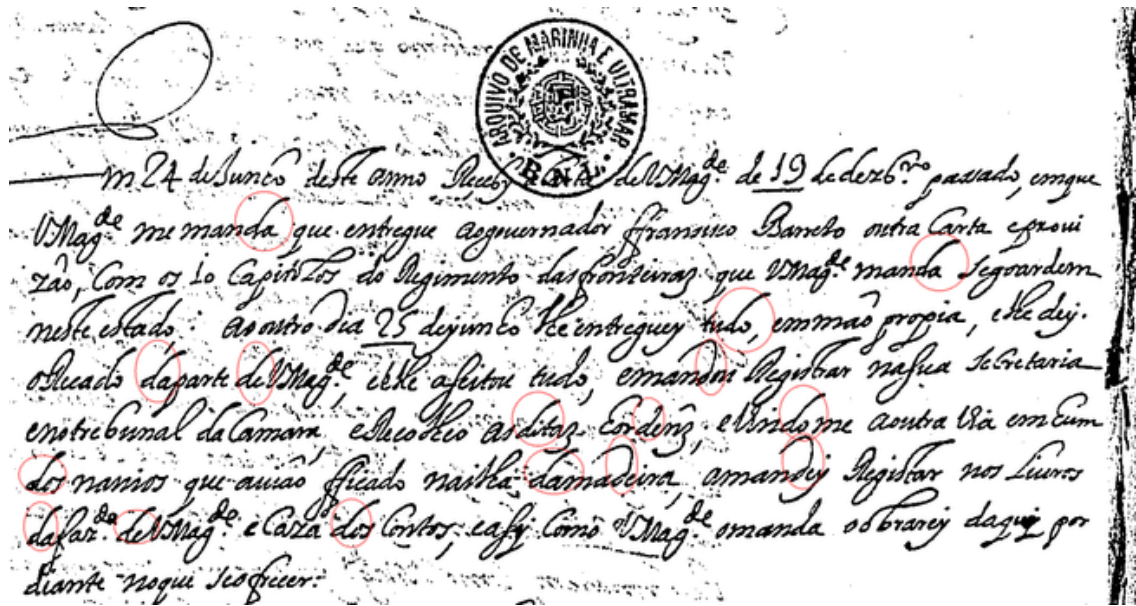 ARQUIVO DE MARINHA E ULTRAMAR
B.N.L.
m 24 de Junho deste anno Receby a Carta de VMag.de de 19 de dezb.ro passado, emque
VMag.de me manda que entregue aogovernador ffrancisco Barreto outra Carta eprovi
zão, Com os 10 Capitolos do Regimento dasfronteiras que VMag.de manda segoardem
neste estado: aooutro dia 25 dejunho lhe entreguey tudo, emmaõ propia, elhe dey.
oRecado daparte de VMag.de eelle aseitou tudo, emandou Registrar nasua secretaria
enotrebunal da Camara, eRecolheo asditas hordens, eVindome aoutra Via emhum
dos navios que avião fficado nailha damadeira, amandey Registar nos Livros
dafaz.da de VMag.de e Caza dos Contos, easy Como VMag.de omanda oobrarey daqui por
diante noque seofrecer: